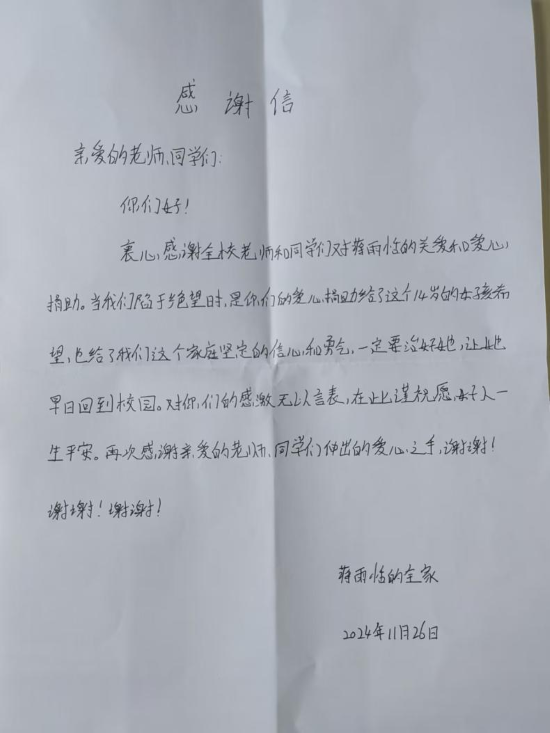 感谢信
亲爱的老师、同学们:
你们好!
衷心感谢全校老师和同学们对蒋雨怡的关爱和爱心
捐助。当我们陷于绝望时,是你们的爱心捐助给了这个14岁的女孩希
望,也给了我们这个家庭坚定的信心和勇气,一定要治好她,让她
早日回到校园。对你们的感激无以言表,在此谨祝愿好人一
生平安。再次感谢亲爱的老师、同学们伸出的爱心之手,谢谢!
谢谢!谢谢!
蒋雨怡的全家
2024年11月26日